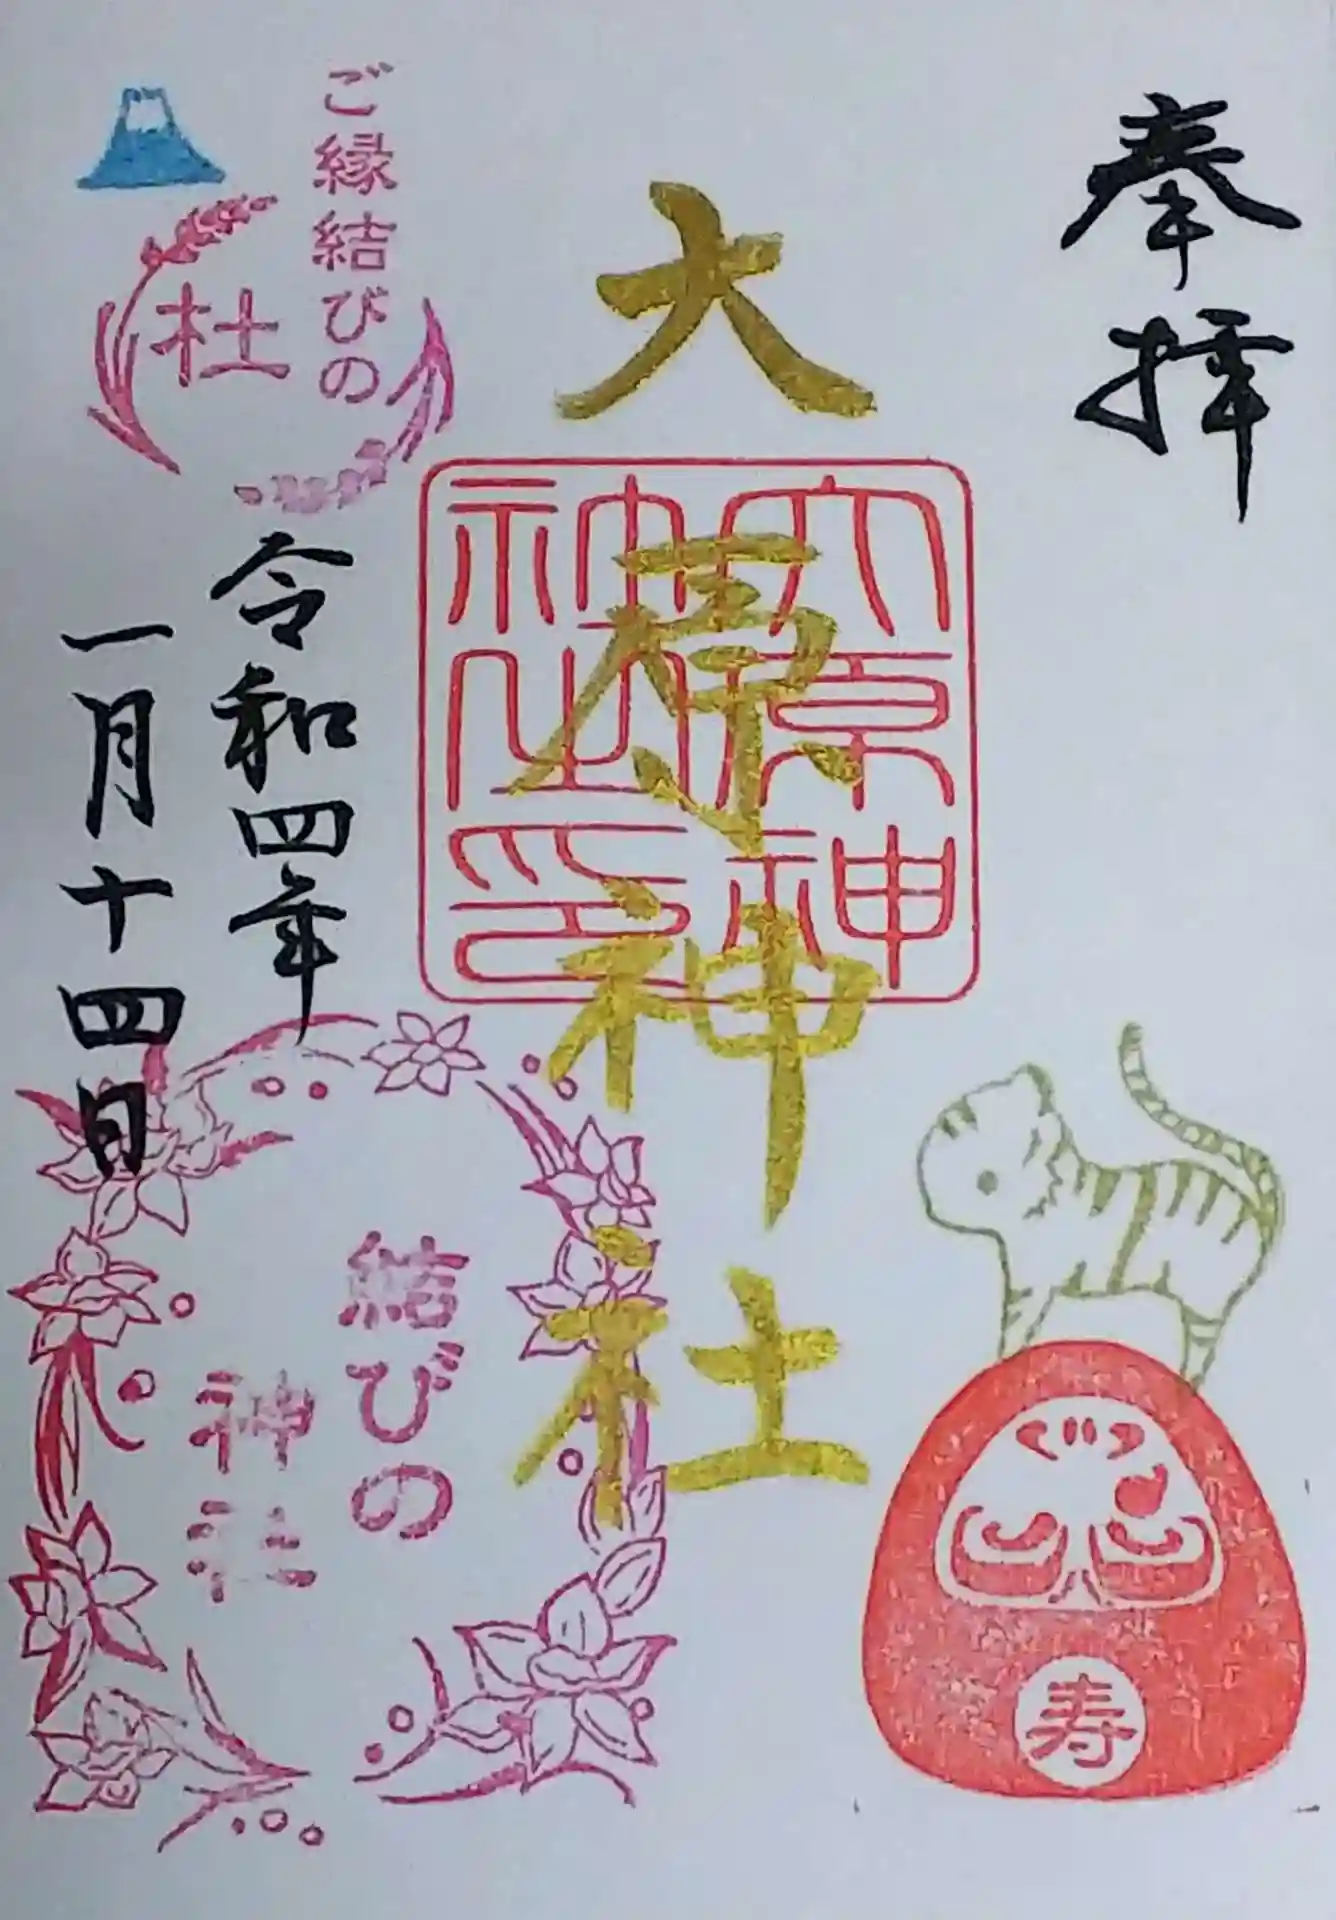 奉拝
大原神社
大原神
社之印
神
ご縁結びの
杜
令和四年
一月十四日
結びの
神社
寿